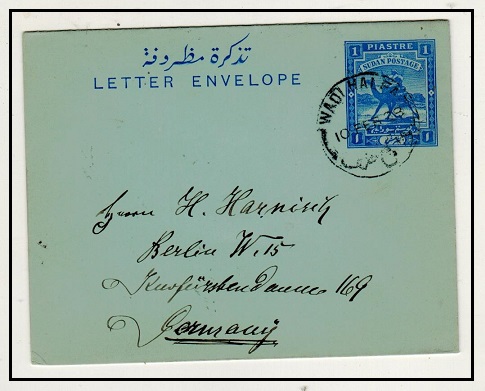 تذكرة مظروفة
LETTER ENVELOPE
1 PIASTRE 1
SUDAN POSTAGE
1 1
WADI HALFA
10 FEB
Herrn H. Harnisch
Berlin W. 15
Kurfürstendamm 169
Germany